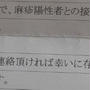 で、麻疹陽性者との接
連絡頂ければ幸いに存